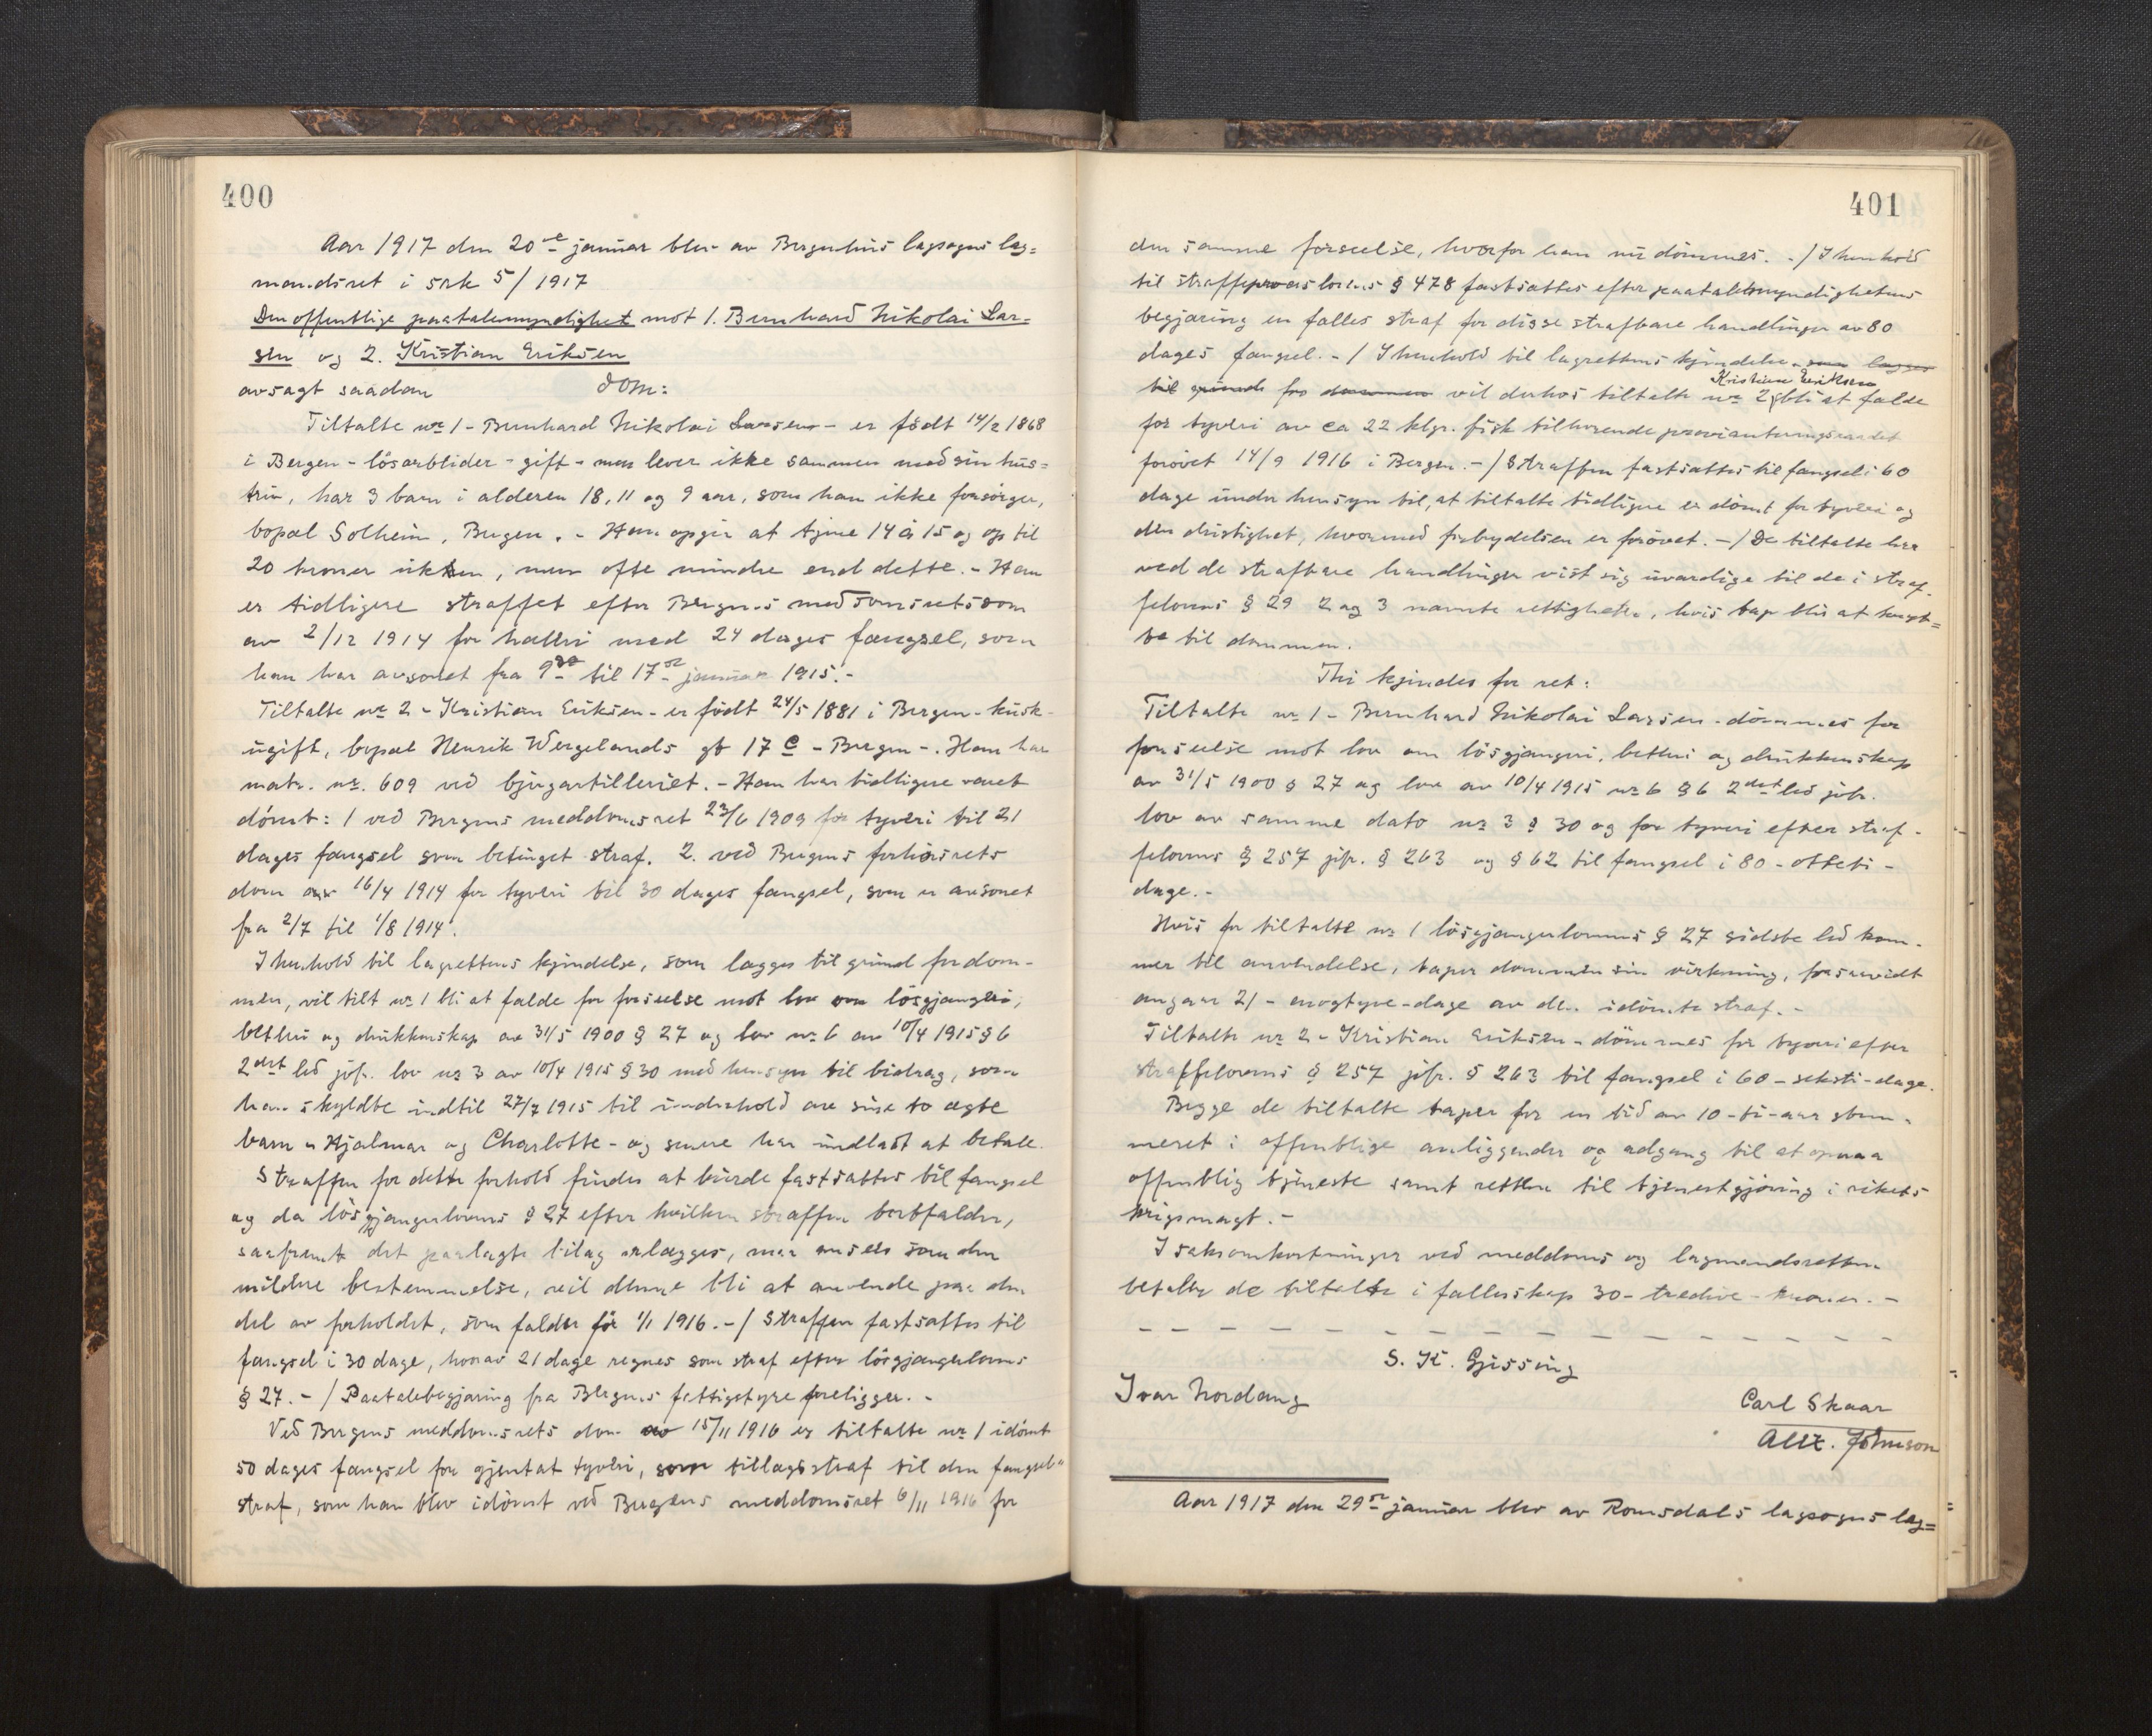 400
Aar 1917 den 20de januar blev av Bergenhus lagsogns lag=
mandsret i sak 5/1917
Den offentlige paatalemyndighet mot 1. Bernhard Nikolai Lar=
sen og 2. Kristian Eriksen
avsagt saadan dom:
Tiltalte nr 1 - Bernhard Nikolai Larsen - er født 14/2 1868
i Bergen - løsarbeider - gift - men lever ikke sammen med sin hus=
tru, har 3 barn i alderen 18, 11 og 9 aar, som han ikke forsørger,
bopæl Solheim, Bergen. - Han opgir at tjene 14 à 15 og op til
20 kroner uken, men ofte mindre end dette. - Han
er tidligere straffet efter Bergens meddomsrets dom
av 2/12 1914 for hæleri med 24 dages fængsel, som
han har avsonet fra 9de til 17de januar 1915. -
Tiltalte nr 2 - Kristian Eriksen - er født 24/5 1881 i Bergen - kusk -
ugift, bopæl Henrik Wergelands gt 17 c - Bergen -. Han har
matr. nr. 609 ved bjergartilleriet. - Han har tidligere været
dømt: 1 ved Bergens meddomsret 23/6 1909 for tyveri til 21
dages fængsel som betinget straf. 2. ved Bergens forhørsrets
dom av 16/4 1914 for tyveri til 30 dages fængsel, som er avsonet
fra 2/7 til 1/8 1914.
I henhold til lagrettens kjendelse, som lægges til grund for dom-
men, vil tilt nr 1 bli at fælde for forseelse mot lov om løsgjængeri,
betleri og drukkenskap av 31/5 1900 § 27 og lov nr 6 av 10/4 1915 § 6
2det led jfr. lov nr 3 av 10/4 1915 § 30 med hensyn til bidrag, som
han skyldte indtil 27/7 1915 til underhold av sine to ægte
barn - Hjalmar og Charlotte - og senere har undlatt at betale.
Straffen for dette forhold findes at burde fastsættes til fængsel
og da løsgjængerlovens § 27 efter hvilken straffen bortfalder,
saafremt det paalagte bidrag erlægges, maa ansees som den
mildere bestemmelse, vil denne bli at anvende paa den
del av forholdet, som falder før 1/1 1916. - / Straffen fastsættes til
fængsel i 30 dage, hvorav 21 dage regnes som straf efter løsgjængerlovens
§ 27. - / Paatalebegjæring fra Bergens fattigstyre foreligger. -
Ved Bergens meddomsrets dom av 15/11 1916 er tiltalte nr 1 idømt
50 dages fængsel for gjentat tyveri, som tillægsstraf til den fængsel=
straf, som han blev idømt ved Bergens meddomsret 6/11 1916 for
401
den samme forseelse, hvorfor han nu dømmes. - / I henhold
til straffeproceslovens § 478 fastsættes efter paatalemyndighetens
begjæring en fælles straf for disse strafbare handlinger av 80
dages fængsel. - / I henhold til lagrettens kjendelse, som lægges
Kristian Eriksen
til grund for dommen vil derhos tiltalte nr 2 bli at fælde
for tyveri av ca 22 klgr. fisk tilhørende provianteringsraadet
forøvet 14/9 1916 i Bergen. - / Straffen fastsættes til fængsel i 60
dage under hensyn til, at tiltalte tidligere er dømt for tyveri og
den dristighet, hvormed forbrydelsen er forøvet. - / De tiltalte har
ved de strafbare handlinger vist sig uværdige til de i straf-
felovens § 29 2 og 3 nævnte rettigheter, hvis tap blir at knyt=
te til dommen.
Thi kjendes for ret:
Tiltalte nr 1 - Bernhard Nikolai Larsen - dømmes for
forseelse mot lov om løsgjængeri, betleri og drukkenskap
av 31/5 1900 § 27 og lov av 10/4 1915 nr 6 § 6 2det led jfr.
lov av samme dato nr 3 § 30 og for tyveri efter straf-
felovens § 257 jfr. § 263 og § 62 til fængsel i 80 - otteti -
dage. -
Hvis for tiltalte nr 1 løsgjængerlovens § 27 sidste led kom-
mer til anvendelse, taper dommen sin virkning, forsaavidt
angaar 21 - enogtyve - dage av den idømte straf. -
Tiltalte nr 2 - Kristian Eriksen - dømmes for tyveri efter
straffelovens § 257 jfr. § 263 til fængsel i 60 - seksti - dage.
Begge de tiltalte taper for en tid av 10 - ti - aar stem-
meret i offentlige anliggender og adgang til at opnaa
offentlig tjeneste samt retten til tjenestgjøring i rikets
krigsmagt. -
I saksomkostninger ved meddoms og lagmandsretten
betaler de tiltalte i fællesskap 30 - tredive - kroner. -
S. K. Gjessing
Ivar Nordang
Carl Skaar
Alex. Johnson
Aar 1917 den 29de januar blev av Romsdals lagsogns lag=